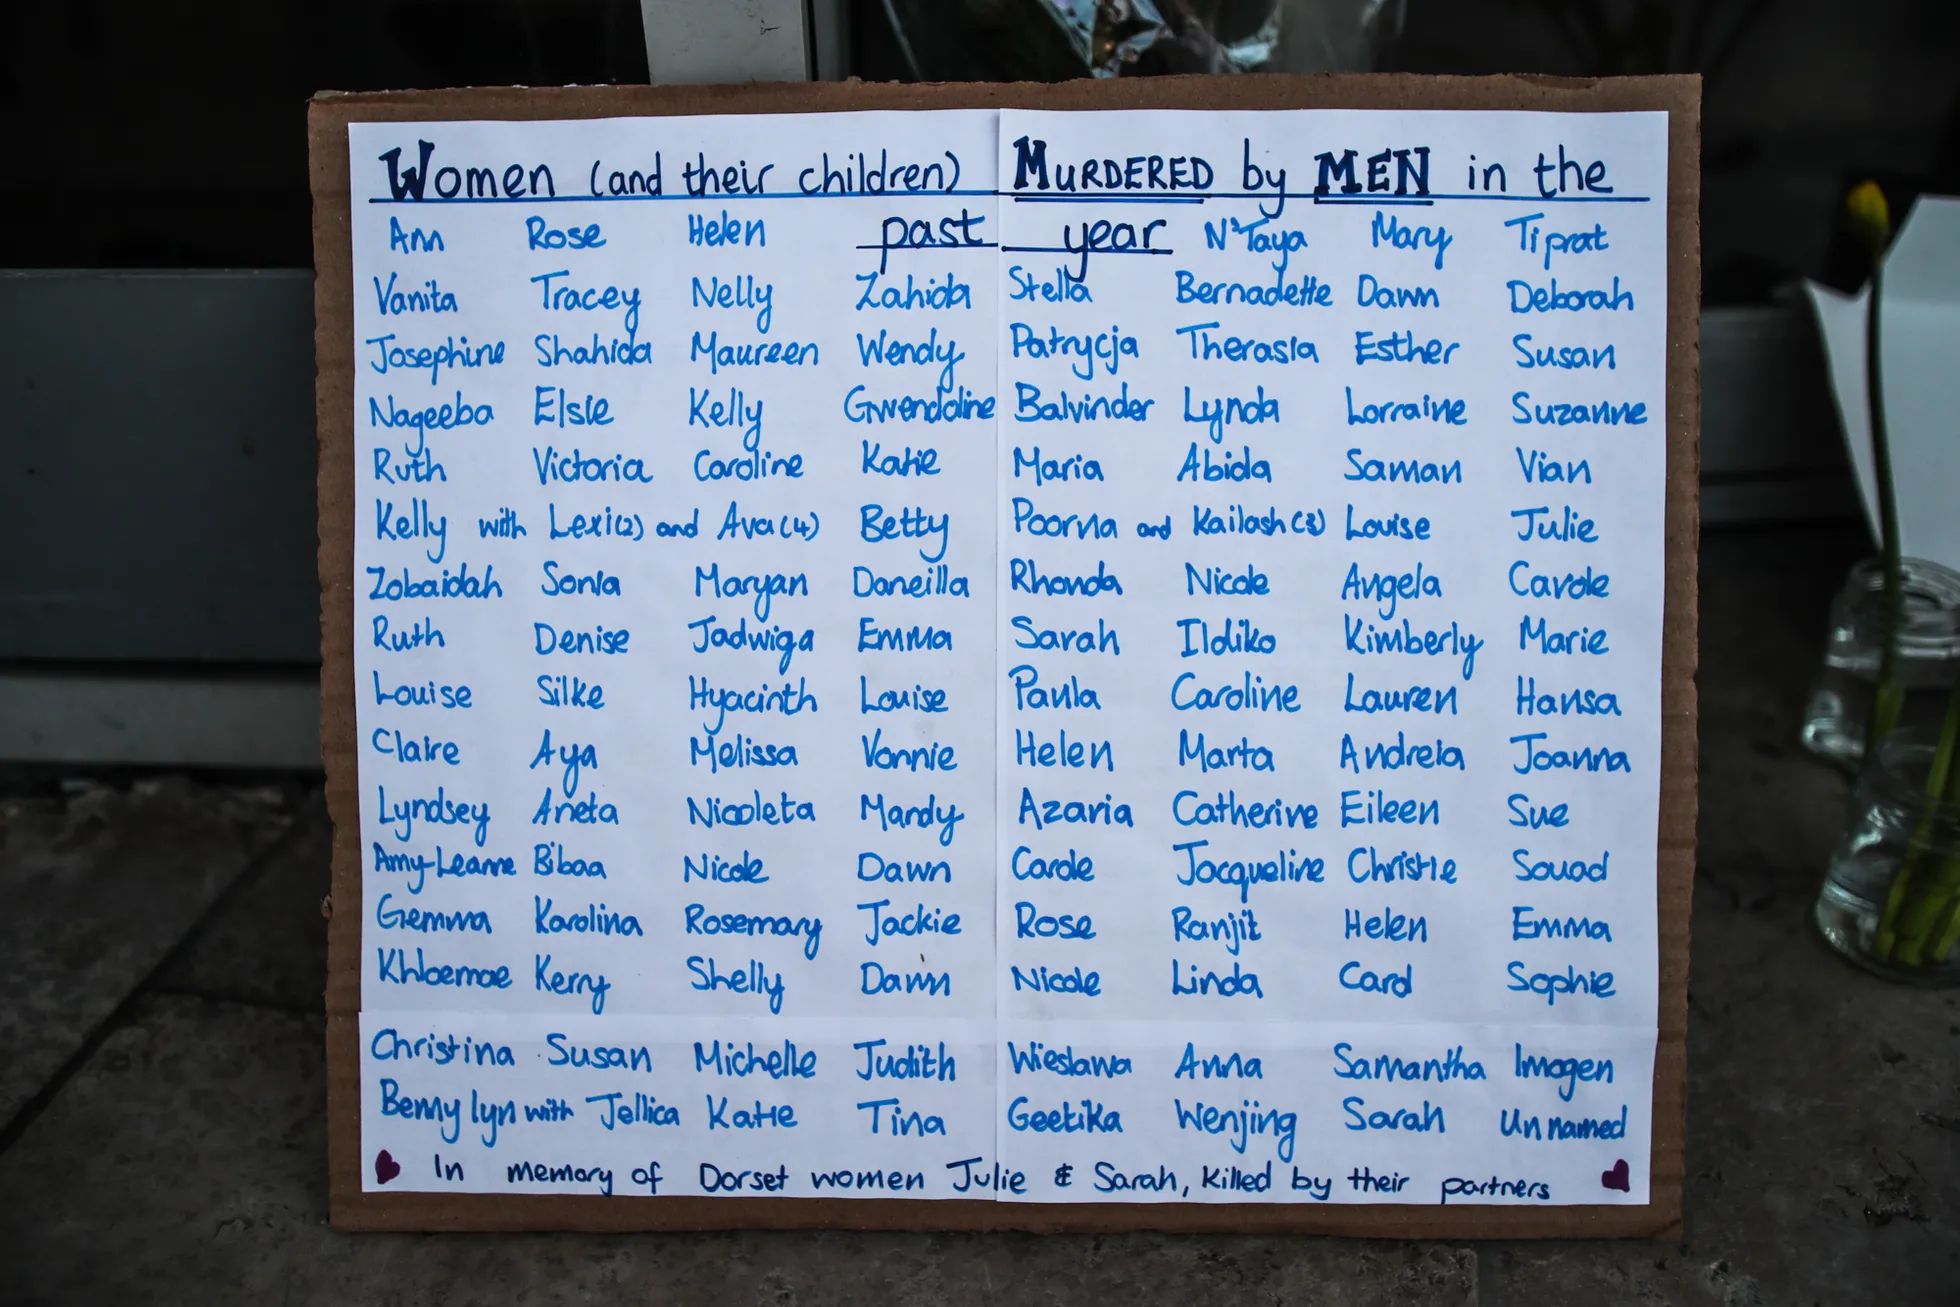 Women (and their children) MURDERED by MEN in the
past year
Ann Rose Helen N'Taya Mary Tiprat
Vanita Tracey Nelly Zahida Stella Bernadette Dawn Deborah
Josephine Shahida Maureen Wendy Patrycja Therasia Esther Susan
Nageeba Elsie Kelly Gwendoline Balvinder Lynda Lorraine Suzanne
Ruth Victoria Caroline Katie Maria Abida Saman Vian
Kelly with Lexi(2) and Ava(4) Betty Poorna and Kailash(3) Louise Julie
Zobaidah Sonia Maryan Daneilla Rhonda Nicole Angela Carole
Ruth Denise Jadwiga Emma Sarah Ildiko Kimberly Marie
Louise Silke Hyacinth Louise Paula Caroline Lauren Hansa
Claire Aya Melissa Vonnie Helen Marta Andreia Joanna
Lyndsey Aneta Nicoleta Mandy Azaria Catherine Eileen Sue
Amy-Leanne Bibaa Nicole Dawn Carole Jacqueline Christie Souad
Gemma Karolina Rosemary Jackie Rose Ranjit Helen Emma
Khloemae Kerry Shelly Dawn Nicole Linda Carol Sophie
Christina Susan Michelle Judith Wieslawa Anna Samantha Imogen
Bennylyn with Jellica Katie Tina Geetika Wenjing Sarah Unnamed
In memory of Dorset women Julie & Sarah, killed by their partners